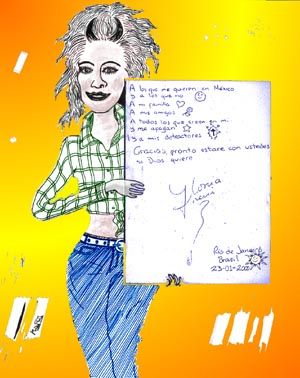 A los que me quieren en México
y a los que no
A mi familia
A mis amigos
A todos los que creen en mi
y me apoyan
y a mis detractores
Gracias, pronto estare con ustedes
si Dios quiere
Gloria
Rio de Janeiro
Brasil